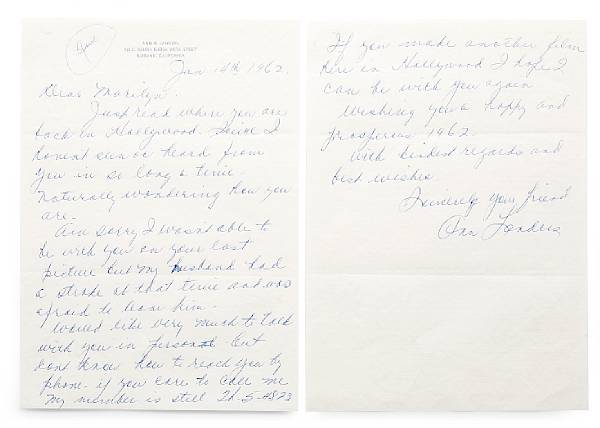 ANN B. LANDERS
BURBANK, CALIFORNIA
Jan 14th 1962.
Dear Marilyn.
Just read where you are
back in Hollywood. Since I
havent seen or heard from
you in so long a time.
Naturally wondering how you
are.
Am sorry I wasnt able to
be with you on your last
picture but my husband had
a stroke at that time and was
afraid to leave him.
Would like very much to talk
with you in person but
dont know how to reach you by
phone. if you care to call me
My number is still Th-5-4873
If you made another film
here in Hollywood I hope I
can be with you again
Wishing you a happy and
prosperous 1962
With kindest regards and
best wishes
Sincerely your friend
Ann Landers